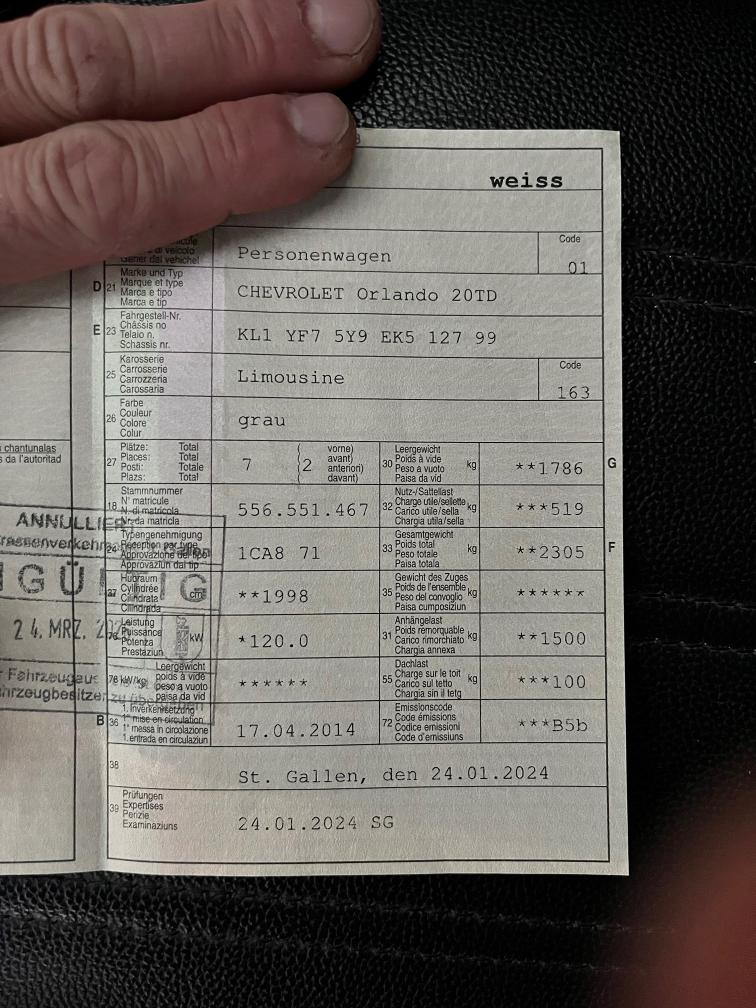 weiss
di veicolo
Gener dal vehichel
Personenwagen
Code
01
D 21
Marke und Typ
Marque et type
Marca e tipo
Marca e tip
CHEVROLET Orlando 20TD
E 23
Fahrgestell-Nr.
Châssis no
Telaio n.
Schassis nr.
KL1 YF7 5Y9 EK5 127 99
25
Karosserie
Carrosserie
Carrozzeria
Carossaria
Limousine
Code
163
26
Farbe
Couleur
Colore
Colur
grau
27
Plätze: Total
Places: Total
Posti: Totale
Plazs: Total
7
2
vorne)
avant)
anteriori)
davant)
30
Leergewicht
Poids à vide
Peso a vuoto
Paisa da vid
kg
**1786
G
chantunalas
da l'autoritad
18
Stammnummer
N° matricule
N. di matricola
Nr. da matricla
556.551.467
32
Nutz-/Sattellast
Charge utile/sellette
Carico utile/sella
Chargia utila/sella
kg
***519
24
Typengenehmigung
Réception par type
Approvazione del tipo
Approvaziun dal tip
1CA8 71
33
Gesamtgewicht
Poids total
Peso totale
Paisa totala
kg
**2305
F
37
Hubraum
Cylindrée
Cilindrata
Cilindrada
cm³
**1998
35
Gewicht des Zuges
Poids de l'ensemble
Peso del convoglio
Paisa cumposiziun
kg
******
Leistung
Puissance
Potenza
Prestaziun
kW
*120.0
31
Anhängelast
Poids remorquable
Carico rimorchiato
Chargia annexa
kg
**1500
78 kW/kg
Leergewicht
poids à vide
peso a vuoto
paisa da vid
******
55
Dachlast
Charge sur le toit
Carico sul tetto
Chargia sin il tetg
kg
***100
B 36
1. Inverkehrsetzung
1re mise en circulation
1a messa in circolazione
1. entrada en circulaziun
17.04.2014
72
Emissionscode
Code émissions
Codice emissioni
Code d'emissiuns
***B5b
38
St. Gallen, den 24.01.2024
39
Prüfungen
Expertises
Perizie
Examinaziuns
24.01.2024 SG
ANNULLIER
rassenverkehr
Gallen
GÜ IG
24. MRZ.
Fahrzeugaus
hrzeugbesitzer zu übergeben